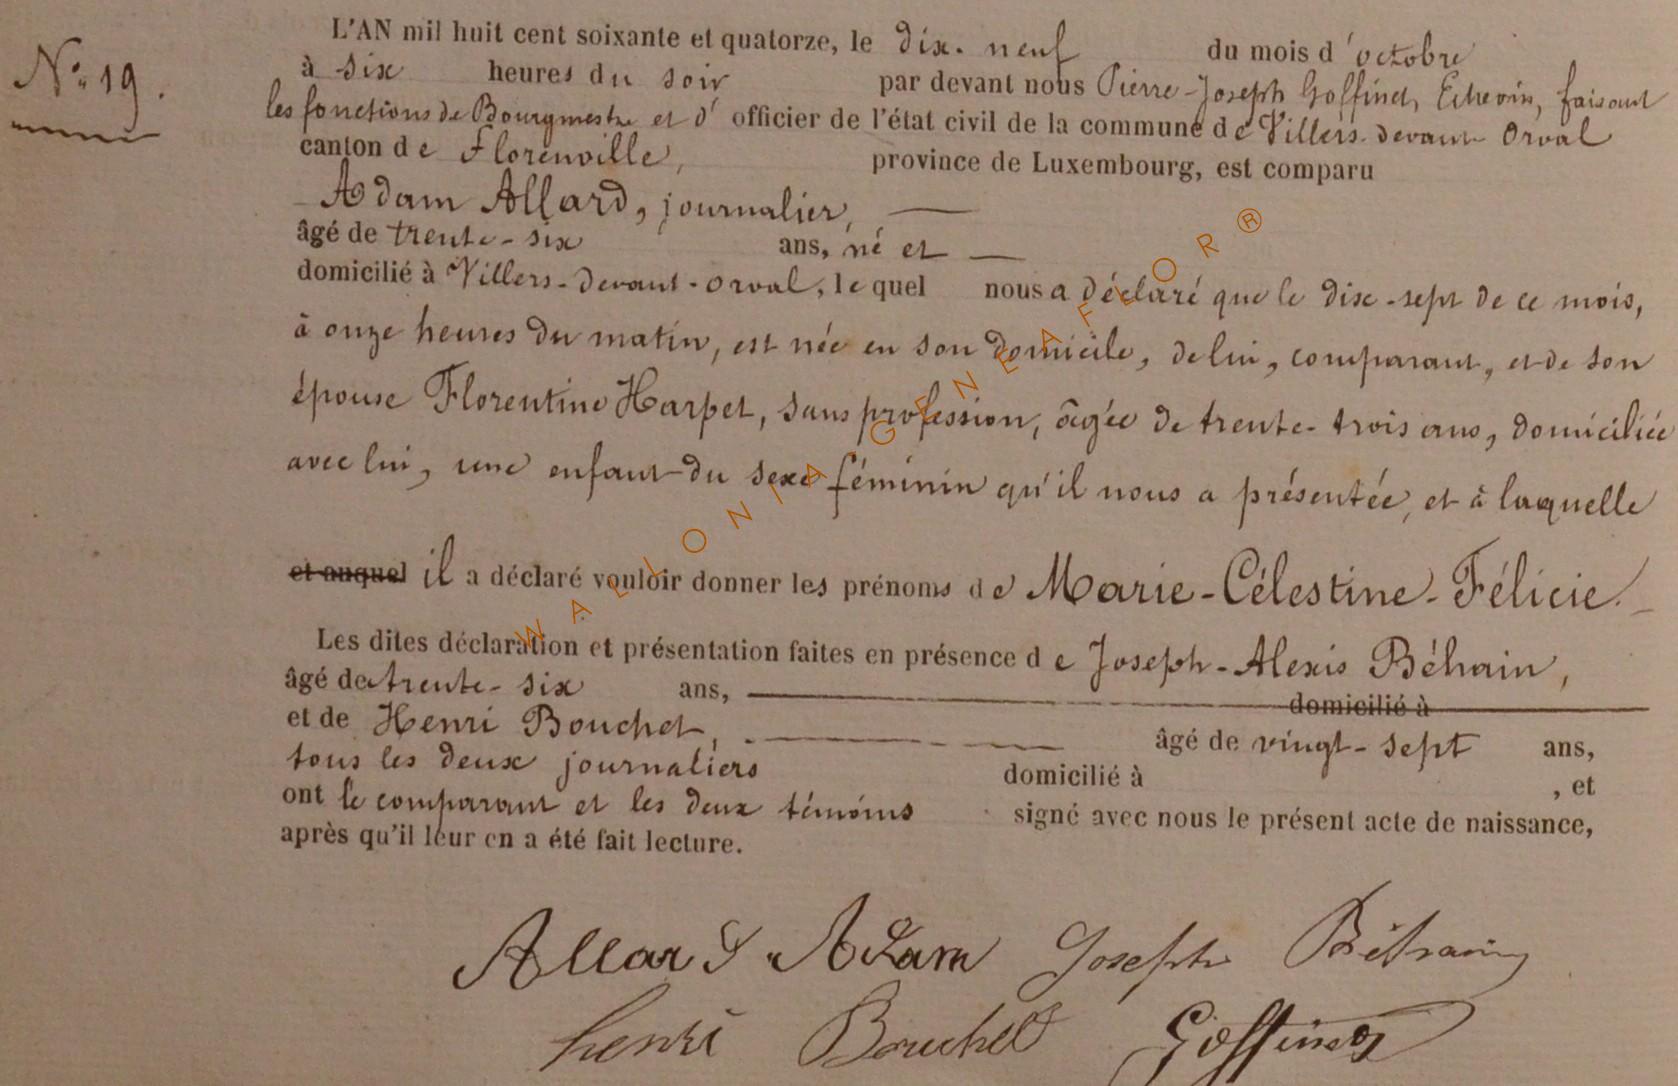 N° 19.
L'AN mil huit cent soixante et quatorze, le dix-neuf du mois d'octobre
à six heures du soir par devant nous Pierre-Joseph Goffinet, Echevin, faisant
les fonctions de Bourgmestre et d'officier de l'état civil de la commune de Villers-devant-Orval
canton de Florenville, province de Luxembourg, est comparu
Adam Allard, journalier,
âgé de trente-six ans, né et
domicilié à Villers-devant-Orval, lequel nous a déclaré que le dix-sept de ce mois,
à onze heures du matin, est née en son domicile, de lui, comparant, et de son
épouse Florentine Harpet, sans profession, âgée de trente-trois ans, domiciliée
avec lui, une enfant du sexe féminin qu'il nous a présentée, et à laquelle
et auquel il a déclaré vouloir donner les prénoms de Marie-Célestine-Félicie.
Les dites déclaration et présentation faites en présence de Joseph-Alexis Béhain,
âgé de trente-six ans, domicilié à
et de Henri Bouchet, âgé de vingt-sept ans,
tous les deux journaliers domicilié à , et
ont le comparant et les deux témoins signé avec nous le présent acte de naissance,
après qu'il leur en a été fait lecture.
Allard Adam Joseph Béhain
henri Bouchet Goffinet
WALLONIA GENEAFLOR ®